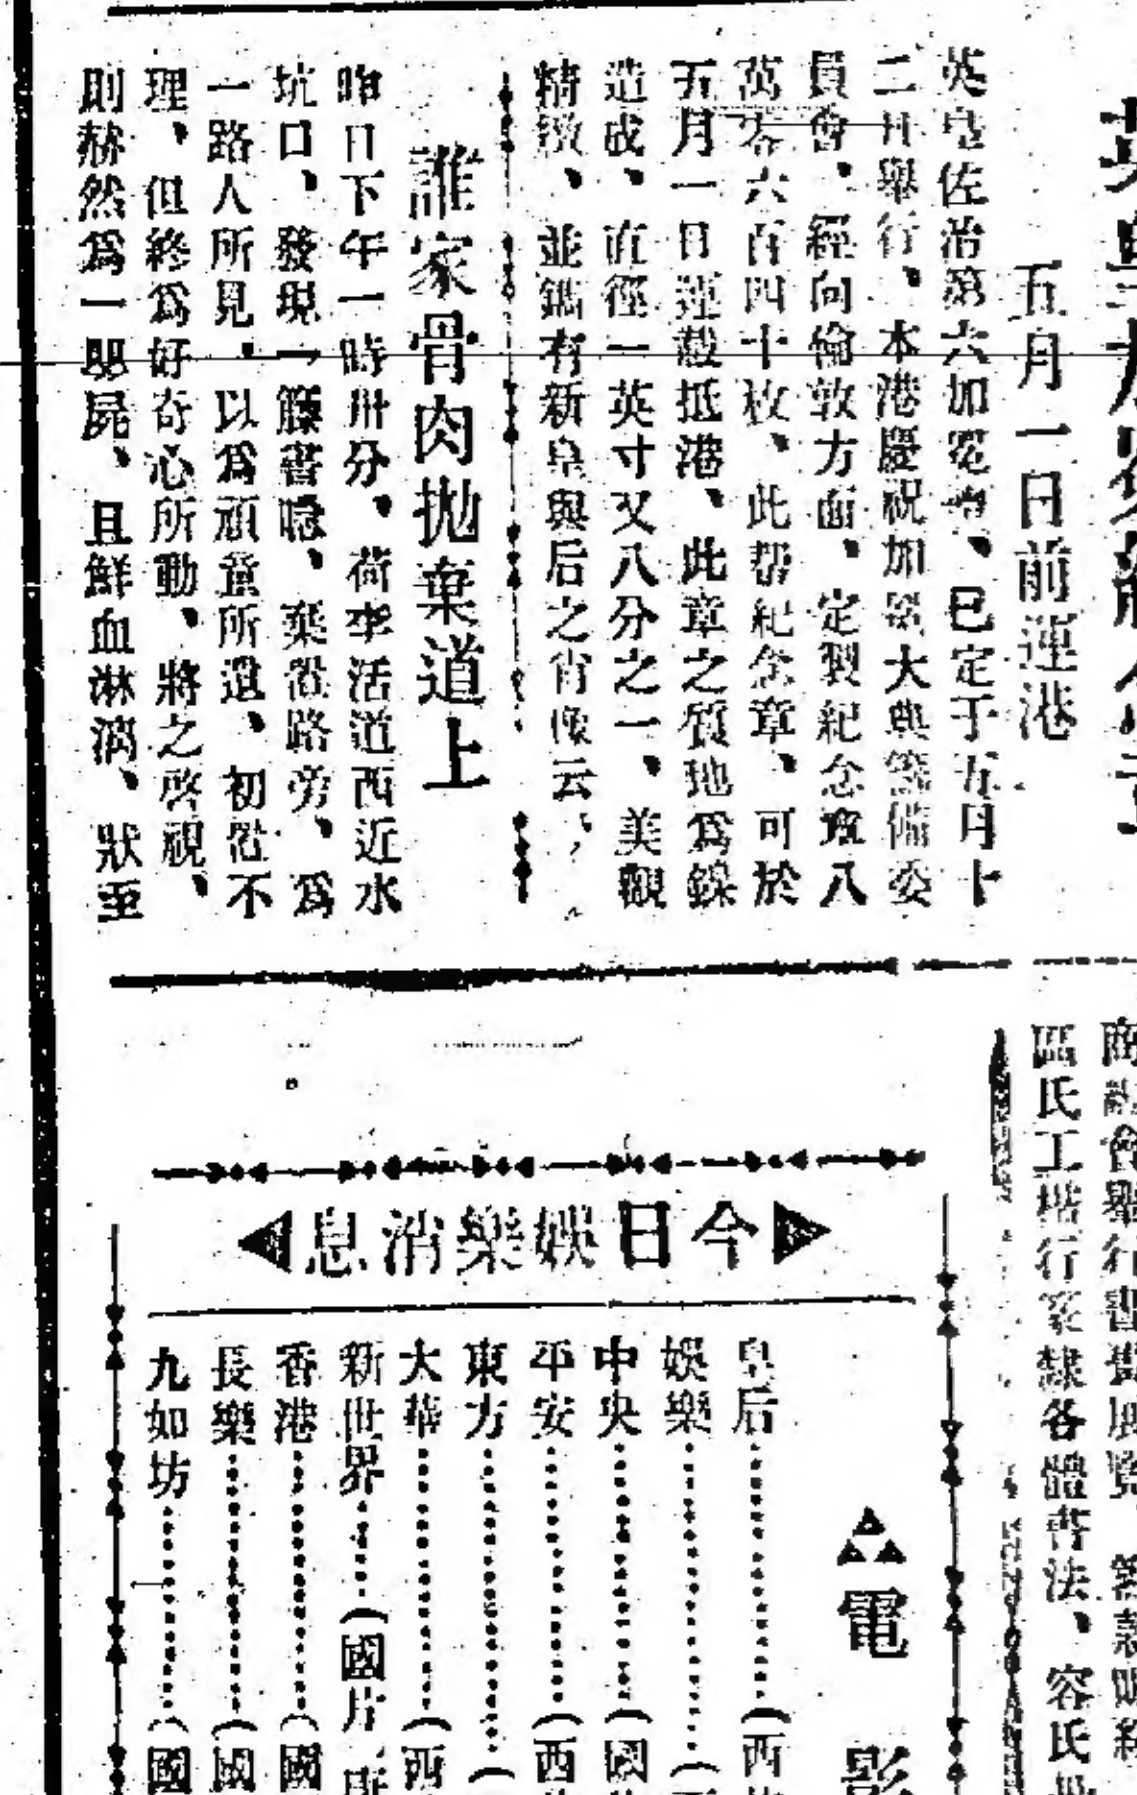 五月一日前運港
英皇佐治第六加冕、已定于五月十
二日舉行、本港慶祝加冕大典籌備委
員會、經向倫敦方面、定製紀念章八
萬零六百四十枚、此帮紀念章、可於
五月一日運載抵港、此章之質地爲鎳
造成、直徑一英寸又八分之一、美觀
精緻、並鐫有新皇與后之肖像云、
誰家骨肉拋棄道上
昨日下午一時卅分、荷李活道西近水
坑口、發現一籐書喼、棄置路旁、爲
一路人所見、以爲頑童所遺、初置不
理、但終爲好奇心所動、將之啓視、
則赫然爲一嬰屍、且鮮血淋漓、狀至
區氏工楷行篆隸各體書法、容氏
今日娛樂消息
電影
皇后⋯⋯(西
娛樂⋯⋯(
中央⋯⋯(國
平安⋯⋯(西
東方⋯⋯(
大華⋯⋯(西
新世界⋯⋯(國片
香港⋯⋯(國
長樂⋯⋯(國
九如坊⋯⋯(國